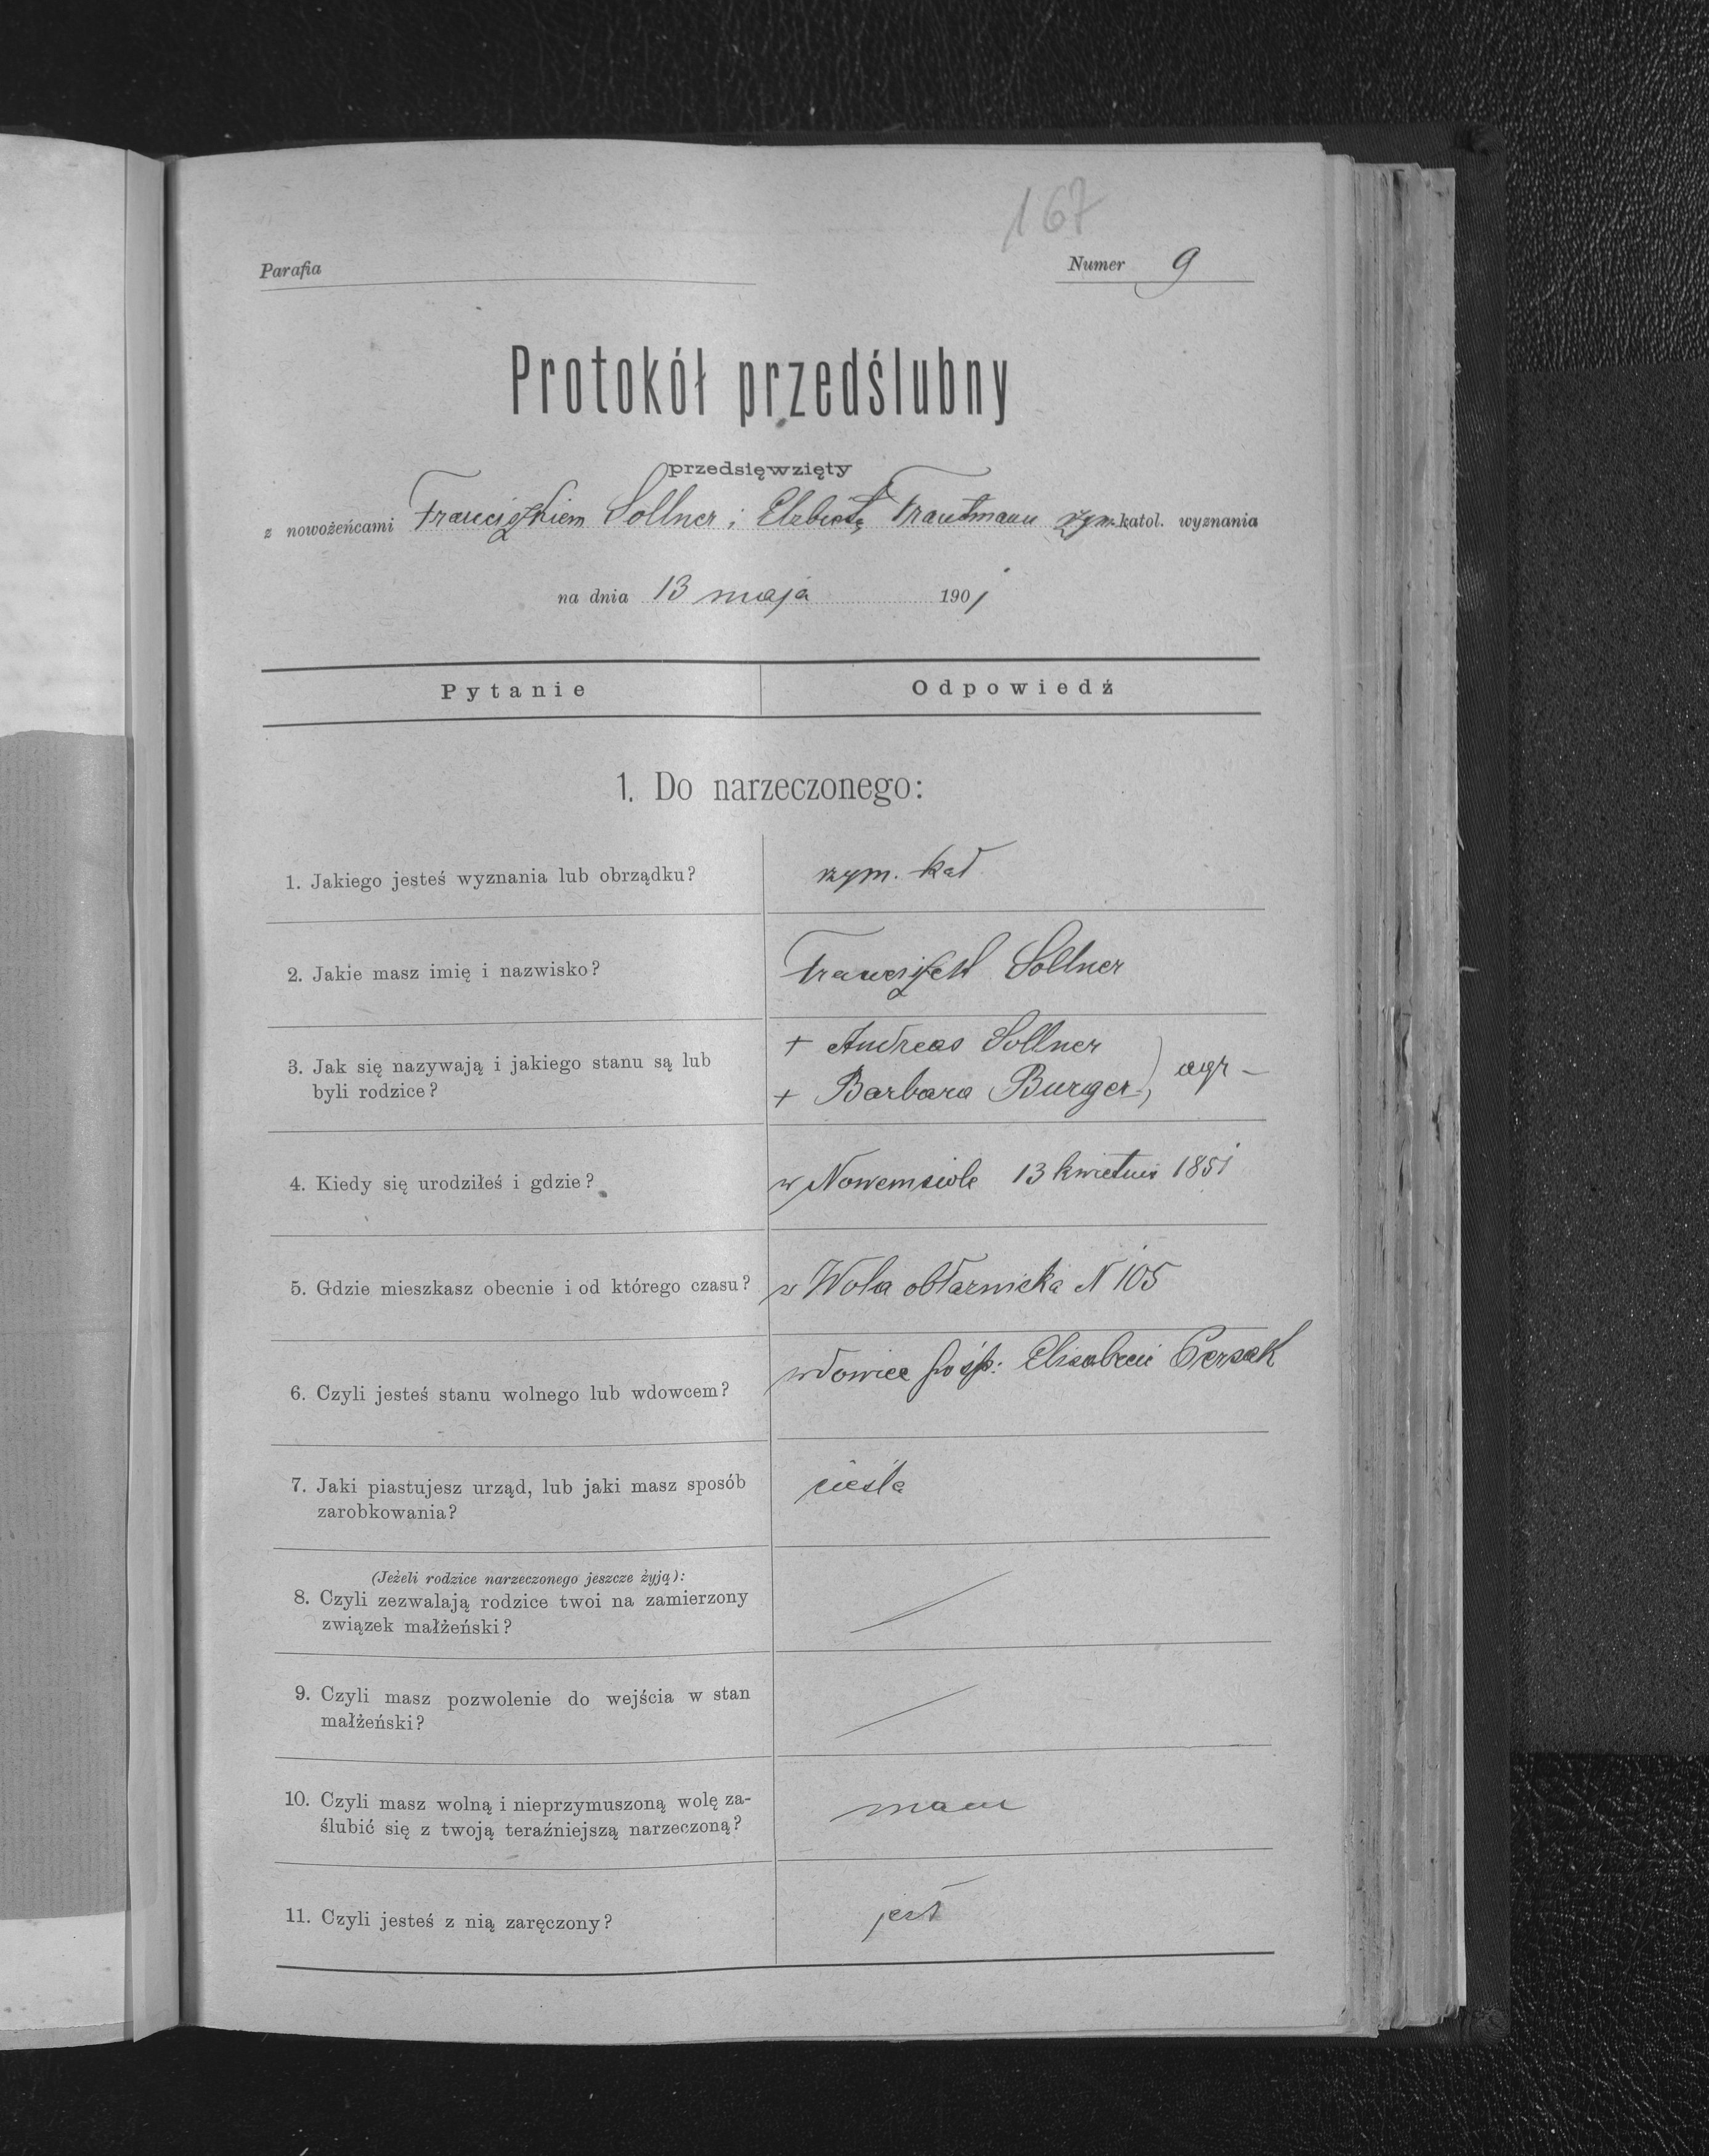 167
Parafia
Numer 9
Protokół przedślubny
przedsięwzięty
z nowożeńcami Franciszkiem Sollner i Elżbietą Trautmann rzym. katol. wyznania
na dnia 13 maja 1901
Pytanie
Odpowiedź
1. Do narzeczonego:
1. Jakiego jesteś wyznania lub obrządku?
rzym. kat
2. Jakie masz imię i nazwisko?
Franciszek Sollner
3. Jak się nazywają i jakiego stanu są lub
byli rodzice?
+ Andreas Sollner
+ Barbara Burger) agr –
4. Kiedy się urodziłeś i gdzie?
w Nowemsiole 13 kwietnia 1851
5. Gdzie mieszkasz obecnie i od którego czasu?
w Wola obłaznicka N 105
6. Czyli jesteś stanu wolnego lub wdowcem?
wdowiec po śp:
7. Jaki piastujesz urząd, lub jaki masz sposób
zarobkowania?
cieśla
(Jeżeli rodzice narzeczonego jeszcze żyją):
8. Czyli zezwalają rodzice twoi na zamierzony
związek małżeński?
9. Czyli masz pozwolenie do wejścia w stan
małżeński?
10. Czyli masz wolną i nieprzymuszoną wolę za-
ślubić się z twoją teraźniejszą narzeczoną?
mam
11. Czyli jesteś z nią zaręczony?
jest